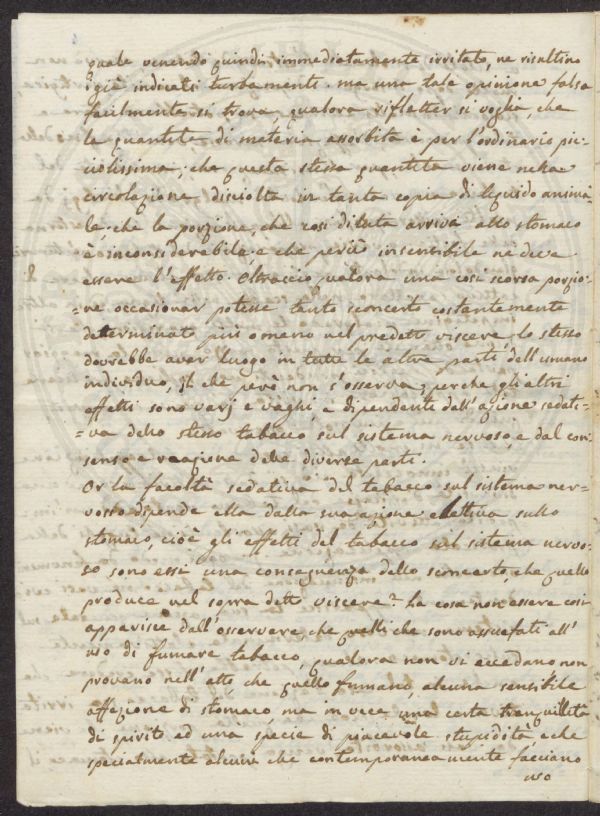 quale venendo quindi immediatamente irritato, ne risultino
i già indicati turbamenti. ma una tale opinione falsa
facilmente si trova, qualora rifletter si voglia, che
la quantità di materia assorbita è per l'ordinario pic=
ciolissima; che questa stessa quantità viene nella
circolazione disciolta in tanta copia di liquido anima
le; che la porzione, che così diluta arriva allo stomaco
è inconsiderabile e che perciò insensibile ne deve
essere l'effetto. Oltracciò qualora una così scarsa porzio=
=ne occasionar potesse tanto sconcerto costantemente
determinato più o meno nel predetto viscere, lo stesso
dovrebbe aver luogo in tutte le altre parti dell'umano
individuo, il che però non s'osserva; perche gli altri
effetti sono varj e vaghi, e dipendenti dall'azione sedati=
=va dello stesso tabacco sul sistema nervoso, e dal con=
senso e reazione delle diverse parti.
Or la facoltà sedativa del tabacco sul sistema ner=
voso dipende ella dalla sua azione elettiva sullo
stomaco, cioè gli effetti del tabacco sul sistema nervo=
so sono essi una conseguenza dello sconcerto, che quello
produce nel sopra detto viscere? La cosa non essere così
apparisce dall'osservare, che quelli che sono assuefati all'
uso di fumare tabacco, qualora non vi eccedano non
provano nell'atto, che quello fumano, alcuna sensibile
affezione di stomaco, ma in vece una certa tranquillità
di spirito ed una specie di piacevole stupidità, e che
specialmente alcuni che contemporaneamente facciano
uso